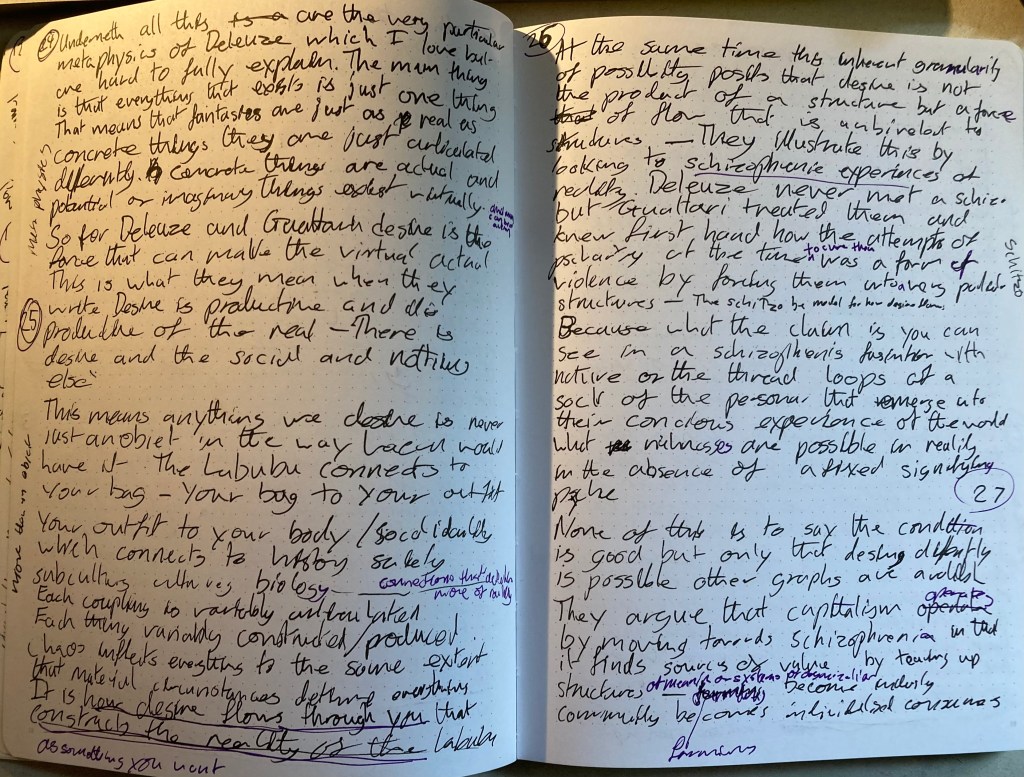 24
Underneth all this are the very particular
metaphysics of Deleuze which I love but
are hard to fully explain. The main thing
is that everything that exists is just one thing
That means that fantasies are just as real as
concrete things they are just articulated
differently. Concrete things are actual and
potential or imaginary things exist virtually.
So for Deleuze and Guattari desire is the
force that can make the virtual actual
This is what they mean when they
25
write Desire is productive and
productive of the real – There is
desire and the social and nothing
else"
This means anything we desire is never
just an objet in the way Lacan would
have it The Labubu connects to
your bag – your bag to your outfit
Your outfit to your body / social identity
which connects to history society
subculture biology
connections that
more of reality
Each coupling is variably
Each thing variably constructed / produced
Chaos inflects everything to the same extent
that material circumstances define everything
It is how desire flows through you that
constructs the reality of the Labubu
as something you want
more than an object
26
At the same time this inherent granularity
of possibility posits that desire is not
the product of a structure but a force
of flow that is ambivalent to
structures – They illustrate this by
looking to schizophrenic experiences of
reality. Deleuze never met a schizo
but Guattari treated them and
knew first hand how the attempts of
to cure them
at the time was a form of
violence by forcing them into
structures – The schitzo
Schitzo
Because what the claim is you can
see in a schizophrenis with
native or the thread loops of a
sock of the personas that emerge into
their concious experience of the world
what richnesses are possible in reality
in the absence of a fixed signifying
27
None of this is to say the condition
is good but only that desiring differently
is possible other graphs are
They argue that capitalism operates
by moving towards schizophrenia in that
it finds sources of value by tearing up
structures of meaning or systems of
become
community becomes individualised consumers